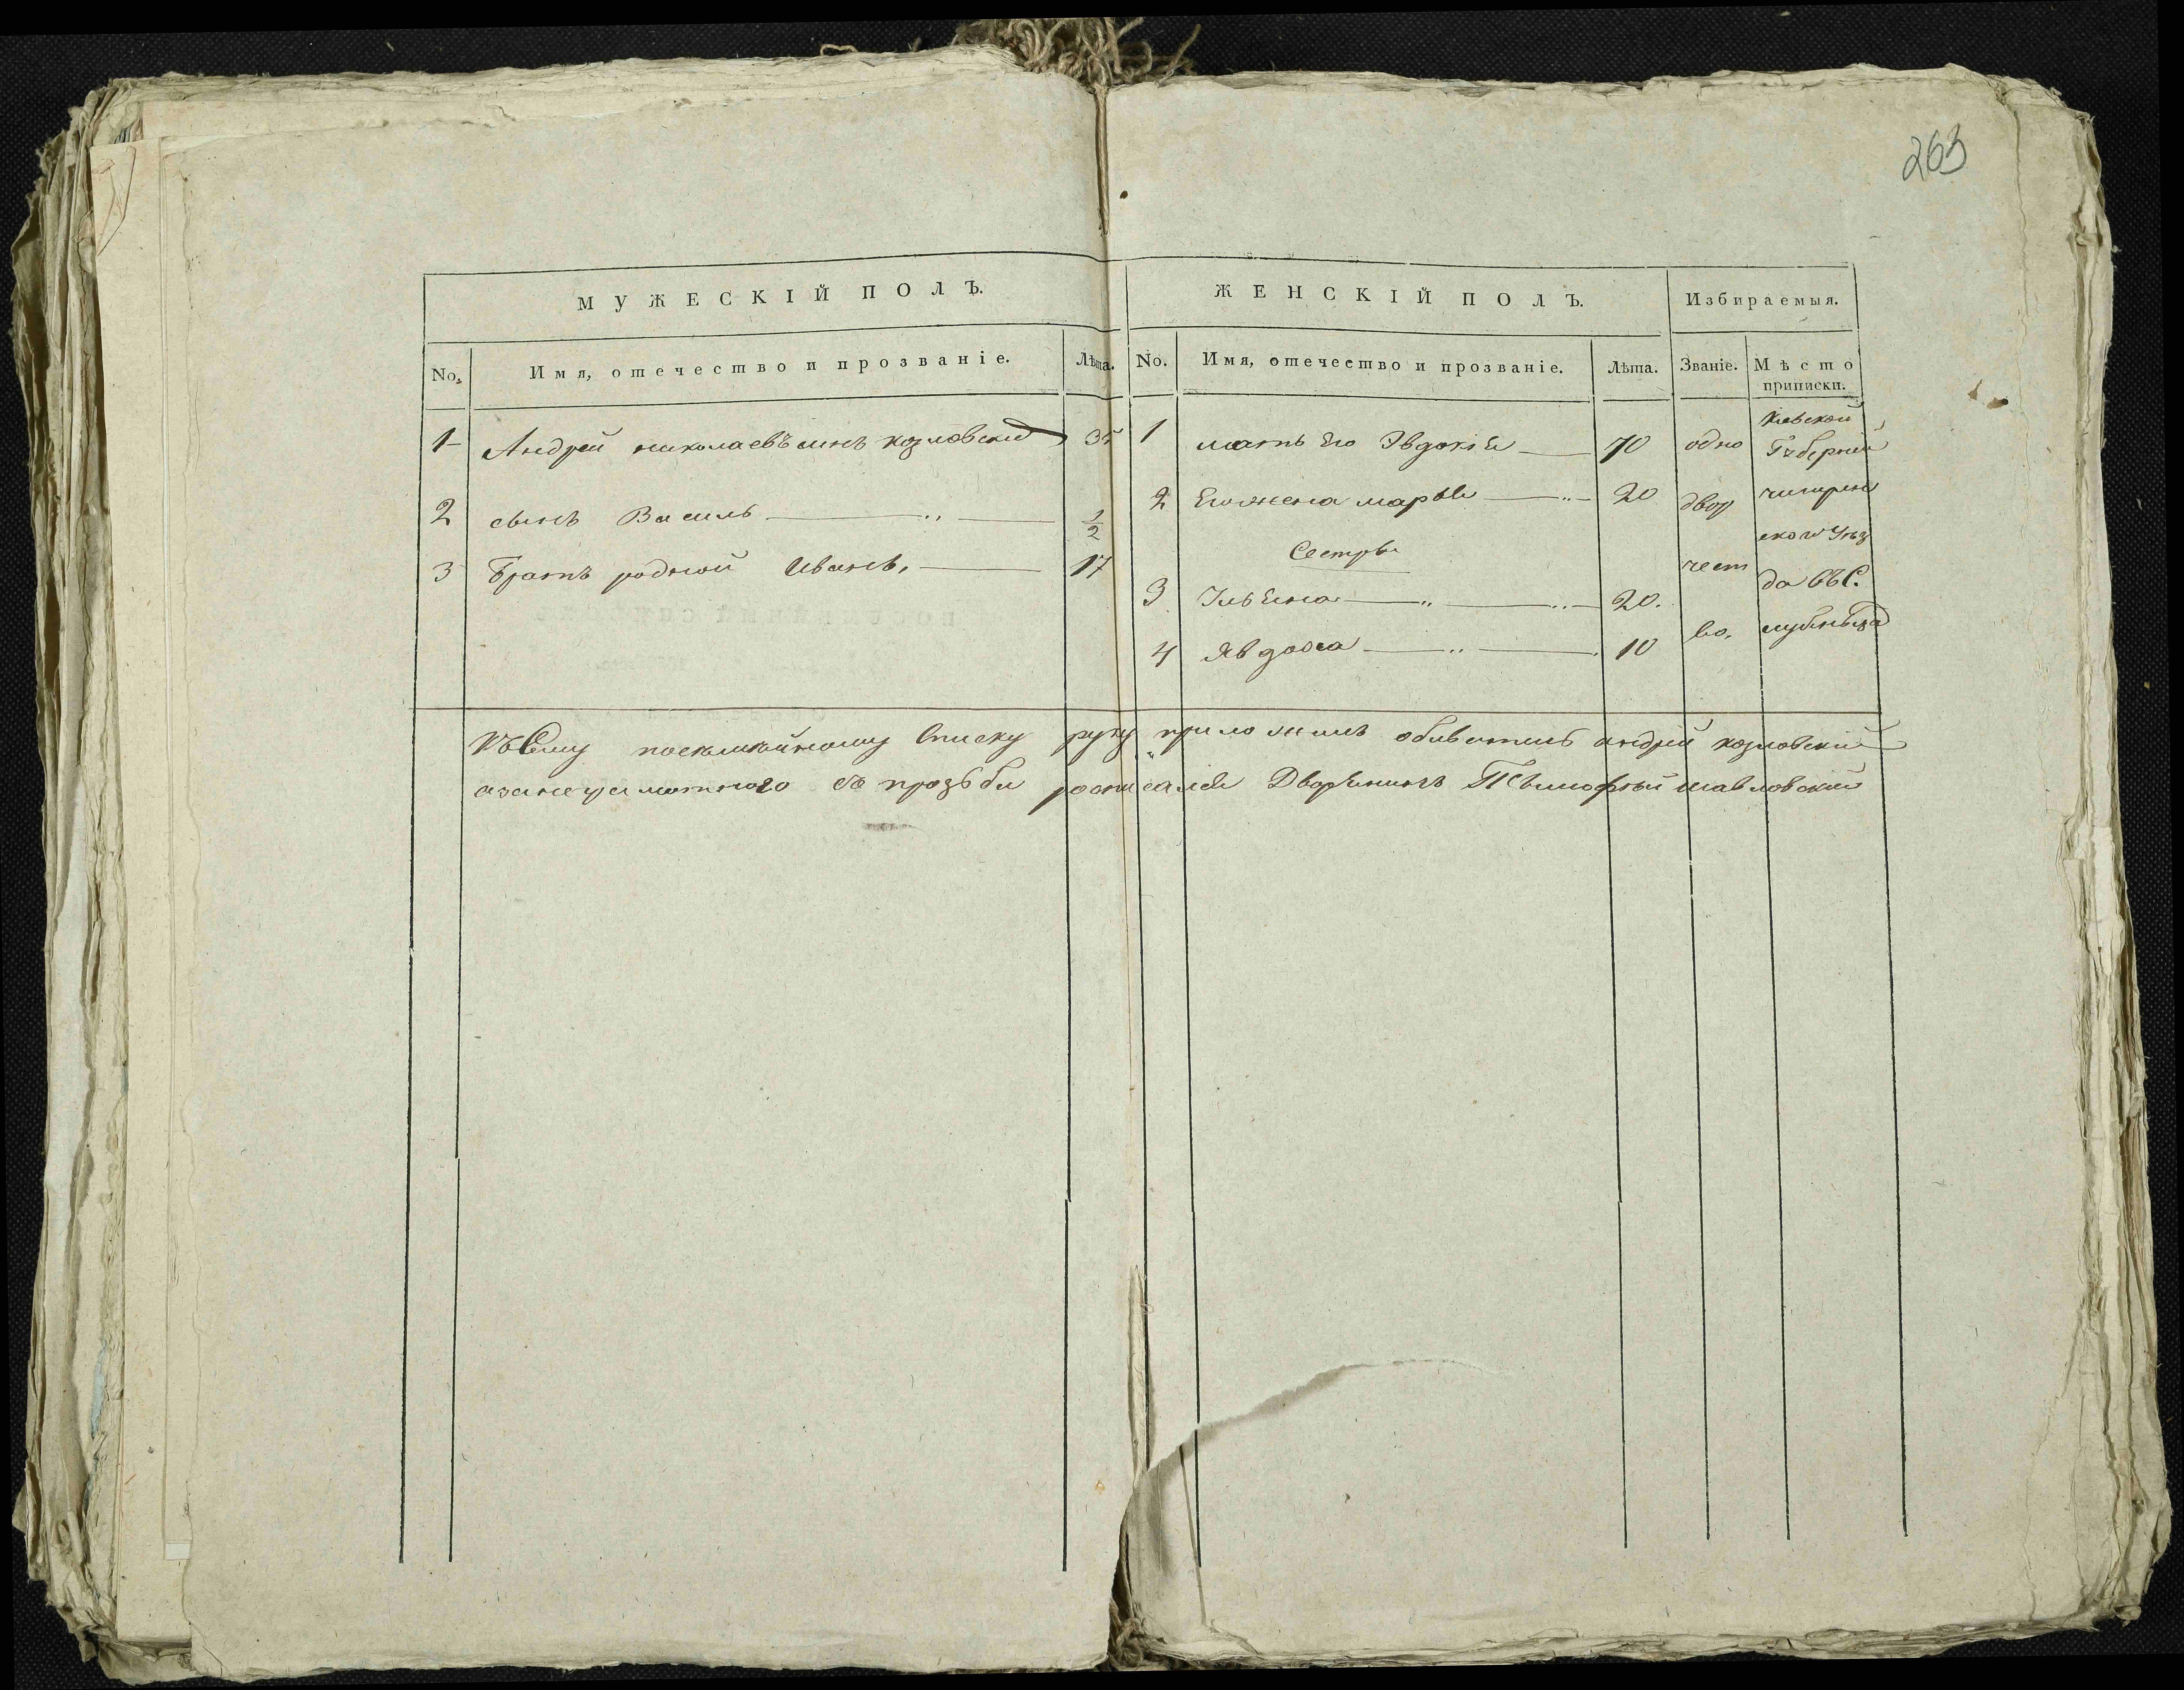 263
МУЖЕСКІЙ ПОЛЪ.
No. Имя, отечество и прозваніе. Лѣта.
1 Андрей николаевъ синъ козловский 35
2 сынъ Василь 1/2
3 Братъ родной Иванъ, 17
ЖЕНСКІЙ ПОЛЪ.
No. Имя, отечество и прозваніе. Лѣта.
1 мать Его Эвдокія 70
2 Его жена марья 20
Сестры
3 Ульяна 20.
4 Явдоха 10
Избираемыя.
Званіе.
одно
двор
чест
во.
Мѣсто
приписки.
Киевской
Губерний
чигирин
ского Уѣз
да въ С.
Къ Сему посемейному Списку руку приложилъ обыватель андрей козловский
а за неграмотного Его прозьби росписался Дворянинъ шавловский